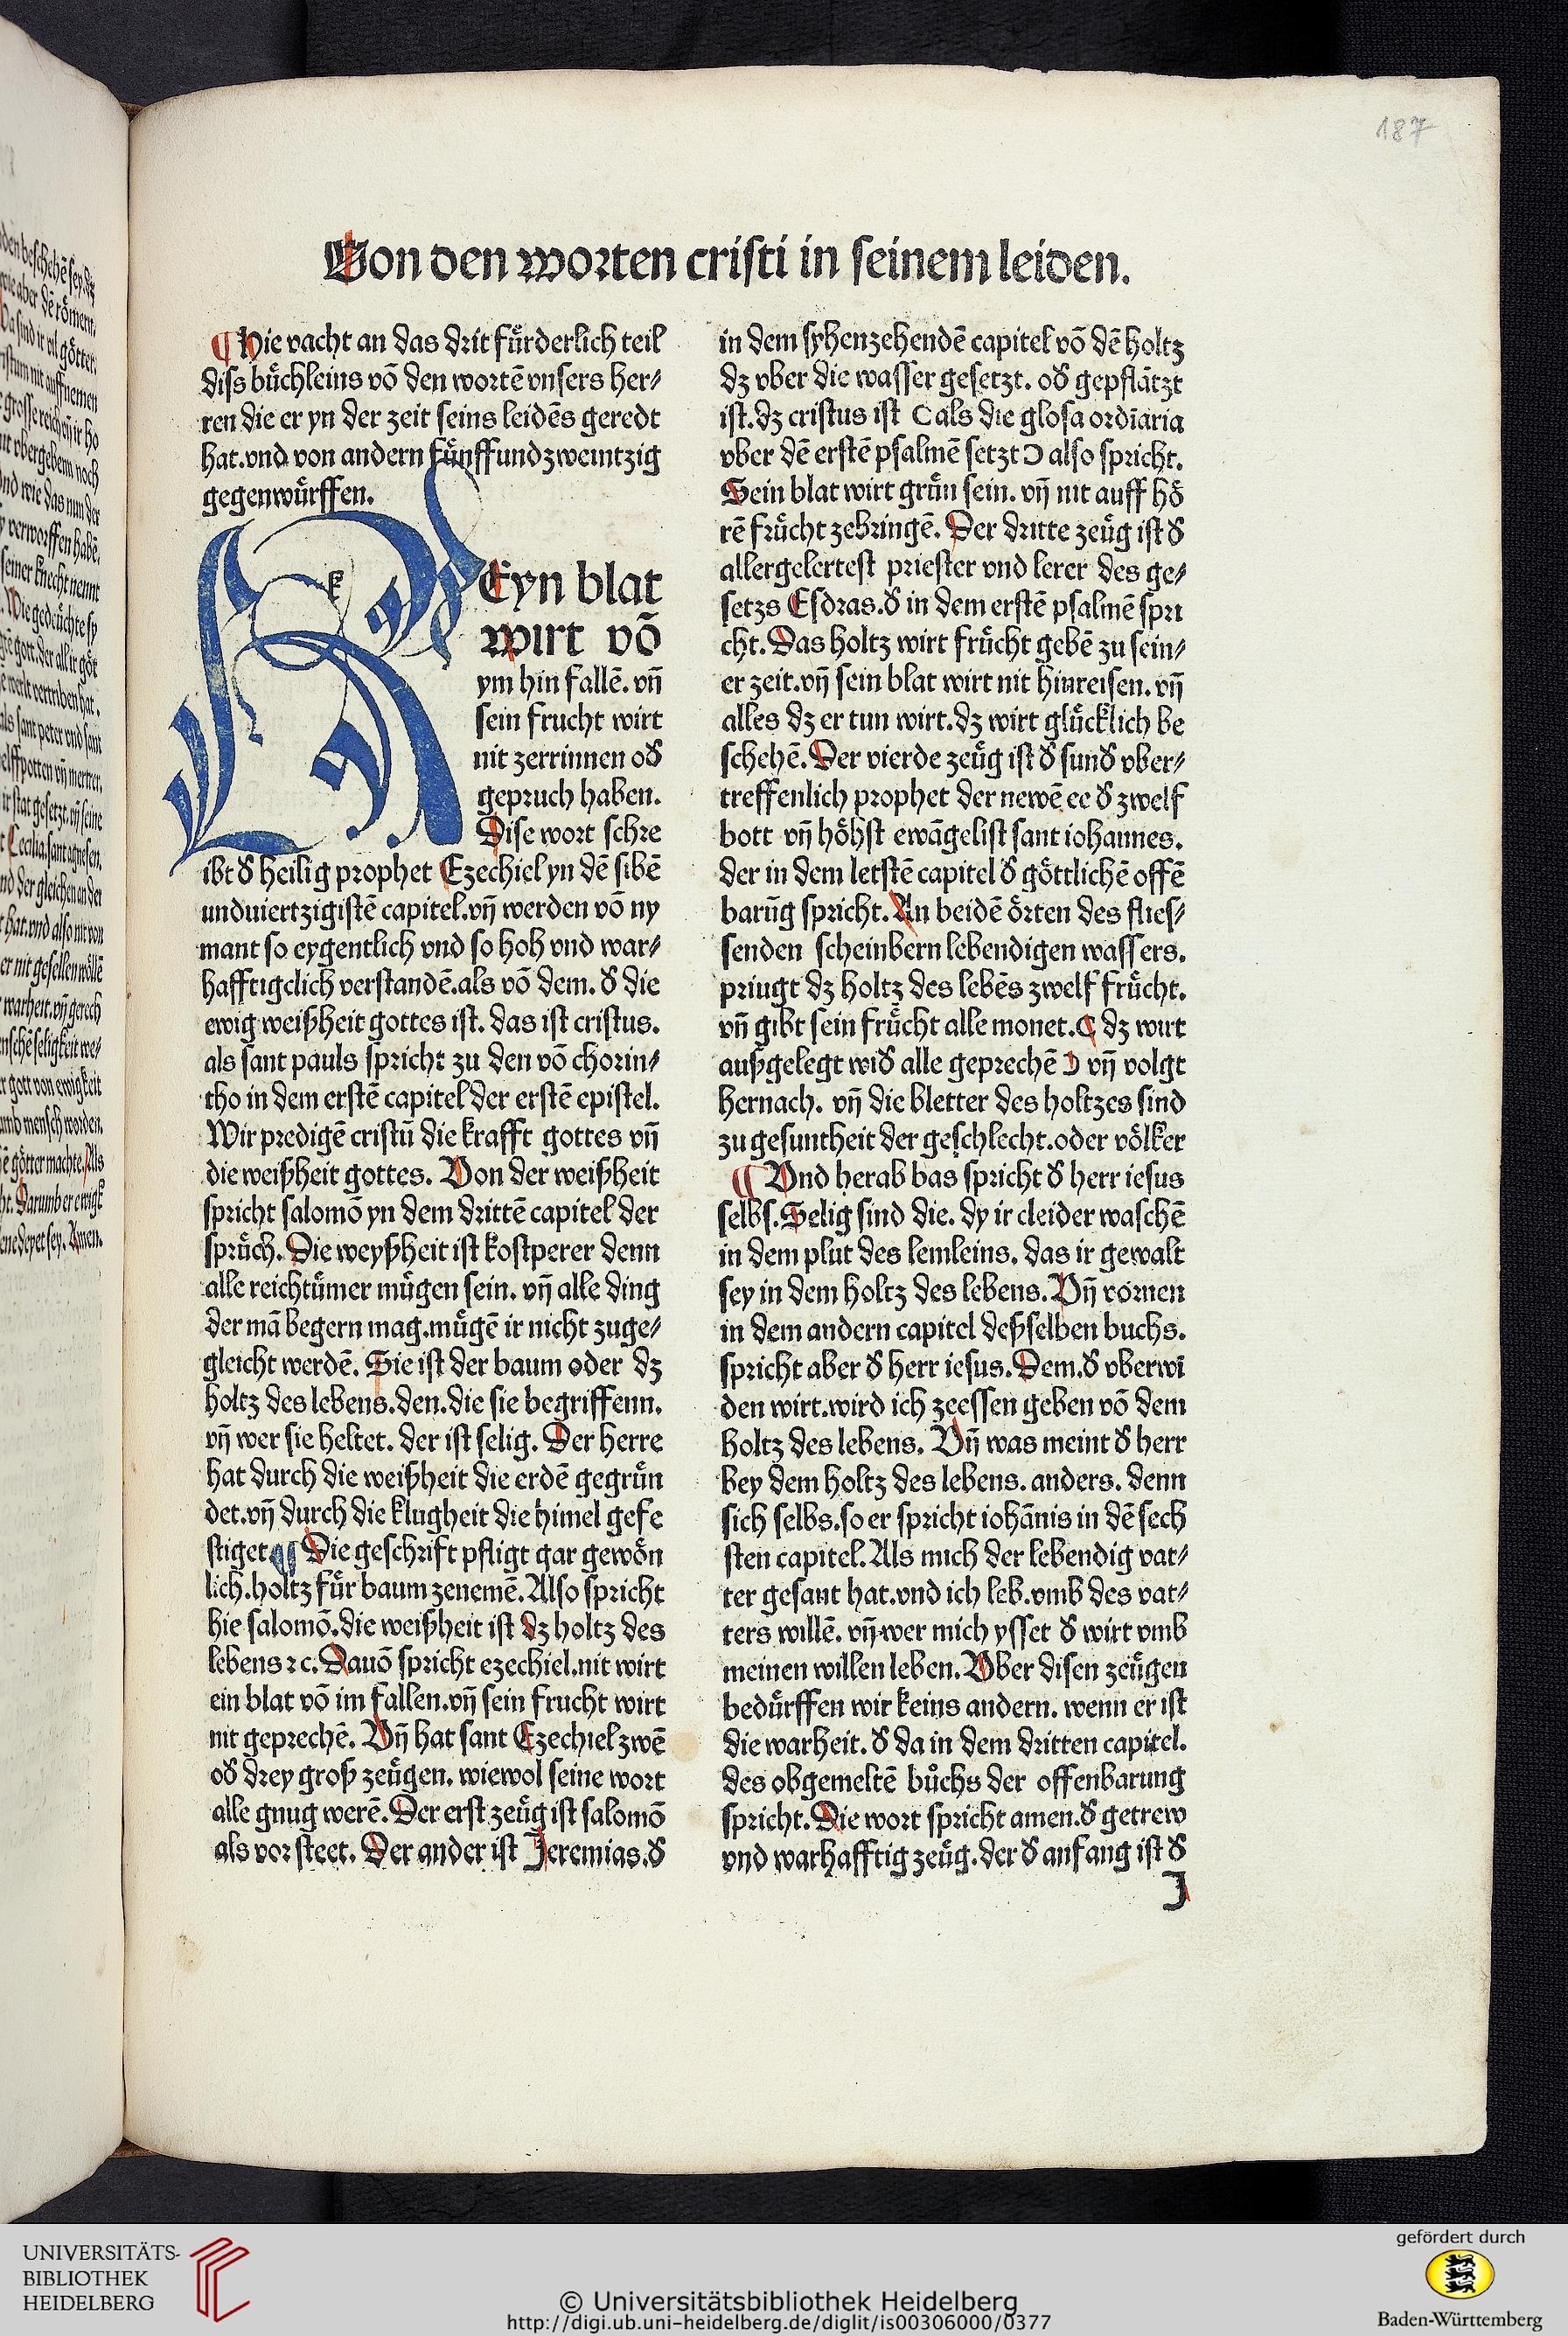 187
Von den worten cristi in seinem leiden.
¶ Hie vacht an das drit fürderlich teil
diss büchleins võ den wortẽ vnsers her⸗
ren die er yn der zeit seins leidẽs geredt
hat. vnd von andern fünffundzweintzig
gegenwürffen.
KEyn blat
wirt võ
ym hin fallẽ. vñ
sein frucht wirt
nit zerrinnen od̕
gepruch haben.
Dise wort schre
ibt d̕ heilig prophet Ezechiel yn dẽ sibẽ
unduiertzigistẽ capitel. vñ werden võ ny
mant so eygentlich vnd so hoh vnd war⸗
hafftigclich verstandẽ. als võ dem. d̕ die
ewig weißheit gottes ist. das ist cristus.
als sant pauls spricht zu den võ chorin⸗
tho in dem erstẽ capitel der erstẽ epistel.
Wir predigẽ cristũ die krafft gottes vñ
die weißheit gottes. Von der weißheit
spricht salomõ yn dem drittẽ capitel der
sprüch. Die weyßheit ist kostperer denn
alle reichtümer mügen sein. vñ alle ding
der mã begern mag. mügẽ ir nicht zuge⸗
gleicht werdẽ. Sie ist der baum oder dz
holtz des lebens. den. die sie begriffenn.
vñ wer sie heltet. der ist selig. Der herre
hat durch die weißheit die erdẽ gegrün
det. vñ durch die klugheit die himel gefe
stiget. ¶ Die geschrift pfligt gar gewön
lich. holtz für baum zenemẽ. Also spricht
hie salomõ. die weißheit ist dz holtz des
lebens ⁊c. Dauõ spricht ezechiel. nit wirt
ein blat võ im fallen. vñ sein frucht wirt
nit geprechẽ. Vñ hat sant Ezechiel zwẽ
od̕ drey groß zeügen. wiewol seine wort
alle gnug werẽ. Der erst zeüg ist salomõ
als vor steet. Der ander ist Jeremias. d̕
in dem syhenzehendẽ capitel võ dẽ holtz
dz vber die wasser gesetzt. od̕ gepflãtzt
ist. dz cristus ist ( als die glosa ordĩaria
vber dẽ erstẽ psalmẽ setzt ) also spricht.
Sein blat wirt grün sein. vñ nit auff hö
rẽ frücht zebringẽ. Der dritte zeüg ist d̕
allergelertest priester vnd lerer des ge⸗
setzs Esdras. d̕ in dem erstẽ psalmẽ spri
cht. Das holtz wirt frücht gebẽ zu sein⸗
er zeit. vñ sein blat wirt nit hinreisen. vñ
alles dz er tun wirt. dz wirt glücklich be
schehẽ. Der vierde zeüg ist d̕ sund̕ vber⸗
treffenlich prophet der newẽ ee d̕ zwelf
bott vñ höhst ewãgelist sant iohannes.
der in dem letstẽ capitel d̕ göttlichẽ offẽ
barũg spricht. An beidẽ örten des flies⸗
senden scheinbern lebendigen wassers.
priugt dz holtz des lebẽs zwelf frücht.
vñ gibt sein frücht alle monet. ( dz wirt
außgelegt wid̕ alle geprechẽ ) vñ volgt
hernach. vñ die bletter des holtzes sind
zu gesuntheit der geschlecht. oder völker
¶ Vnd herab bas spricht d̕ herr iesus
selbs. Selig sind die. dy ir cleider waschẽ
in dem plut des lemleins. das ir gewalt
sey in dem holtz des lebens. Vñ vornen
in dem andern capitel deßselben buchs.
spricht aber d̕ herr iesus. Dem. d̕ vberwĩ
den wirt. wird ich zeessen geben võ dem
holtz des lebens. Vñ was meint d̕ herr
bey dem holtz des lebens. anders. denn
sich selbs. so er spricht iohãnis in dẽ sech
sten capitel. Als mich der lebendig vat⸗
ter gesant hat. vnd ich leb. vmb des vat⸗
ters willẽ. vñ wer mich ysset d̕ wirt vmb
meinen willen leben. Vber disen zeügen
bedürffen wir keins andern. wenn er ist
die warheit. d̕ da in dem dritten capitel.
des obgemeltẽ bůchs der offenbarung
spricht. Die wort spricht amen. d̕ getrew
vnd warhafftig zeüg. der d̕ anfang ist d̕
J
UNIVERSITÄTS-
BIBLIOTHEK
HEIDELBERG
© Universitätsbibliothek Heidelberg
http://digi.ub.uni-heidelberg.de/diglit/is00306000/0377
gefördert durch
Baden-Württemberg